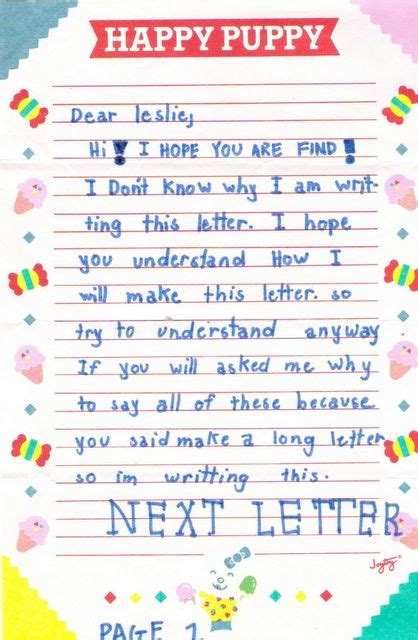 HAPPY PUPPY
Dear leslie,
Hi! I HOPE YOU ARE FIND!
I Don't Know why I am writ-
ting this letter. I hope
you understand How I
will make this letter. so
try to understand anyway
If you will asked me why
to say all of these because
you said make a long letter
so im writting this.
NEXT LETTER
PAGE 1